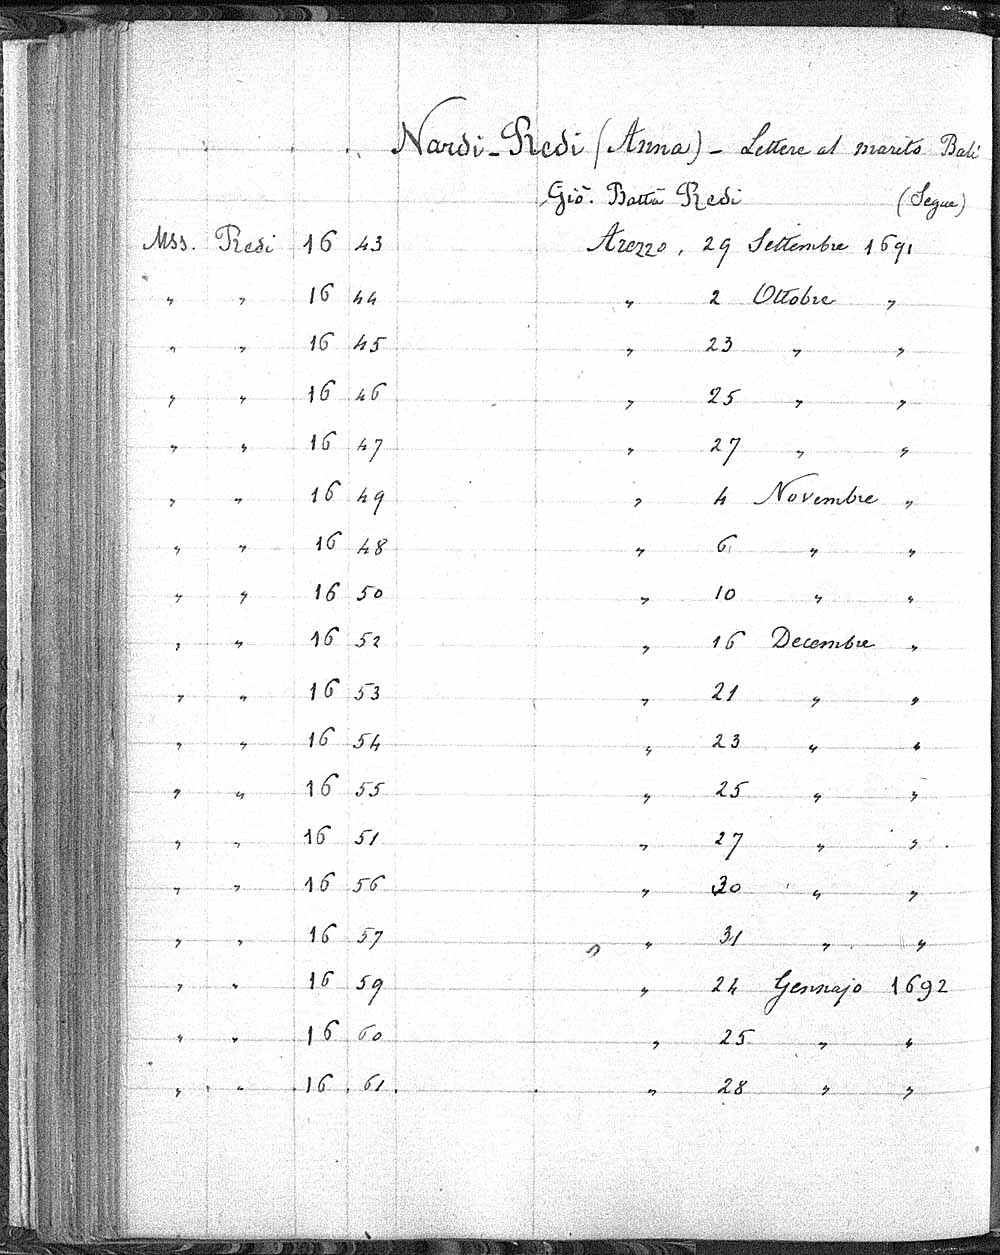 Nardi-Redi (Anna) - Lettere al marito Balì
Gio. Batta Redi (Segue)
Mss. Redi 16 43 Arezzo, 29 Settembre 1691
" " 16 44 " 2 Ottobre "
" " 16 45 " 23 " "
" " 16 46 " 25 " "
" " 16 47 " 27 " "
" " 16 49 " 4 Novembre "
" " 16 48 " 6 " "
" " 16 50 " 10 " "
" " 16 52 " 16 Decembre "
" " 16 53 " 21 " "
" " 16 54 " 23 " "
" " 16 55 " 25 " "
" " 16 51 " 27 " "
" " 16 56 " 30 " "
" " 16 57 " 31 " "
" " 16 59 " 24 Gennajo 1692
" " 16 60 " 25 " "
" " 16 61 " 28 " "